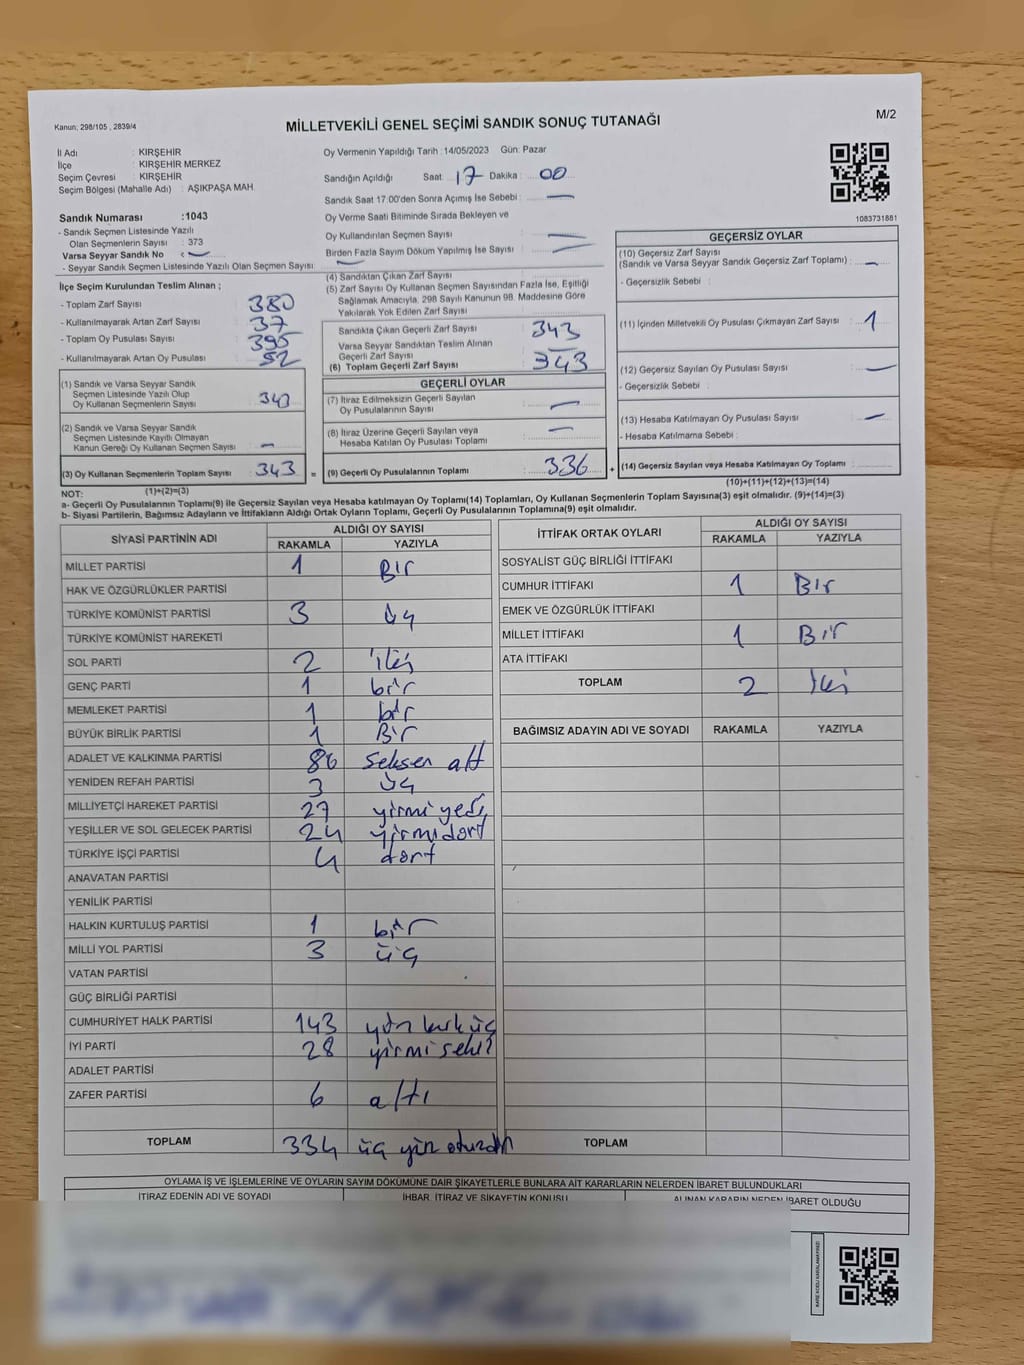 Kanun; 298/105 , 2839/4
MİLLETVEKİLİ GENEL SEÇİMİ SANDIK SONUÇ TUTANAĞI
M/2
İl Adı : KIRŞEHİR
İlçe : KIRŞEHİR MERKEZ
Seçim Çevresi : KIRŞEHİR
Seçim Bölgesi (Mahalle Adı) : AŞIKPAŞA MAH.
Oy Vermenin Yapıldığı Tarih :14/05/2023 Gün: Pazar
Sandığın Açıldığı Saat : 17 Dakika : 00
Sandık Saat 17:00'den Sonra Açımış İse Sebebi : —
Oy Verme Saati Bitiminde Sırada Bekleyen ve
Oy Kullandırılan Seçmen Sayısı : —
Birden Fazla Sayım Döküm Yapılmış İse Sayısı : —
1083731881
Sandık Numarası :1043
- Sandık Seçmen Listesinde Yazılı
Olan Seçmenlerin Sayısı : 373
Varsa Seyyar Sandık No : —
- Seyyar Sandık Seçmen Listesinde Yazılı Olan Seçmen Sayısı : —
İlçe Seçim Kurulundan Teslim Alınan ;
- Toplam Zarf Sayısı : 380
- Kullanılmayarak Artan Zarf Sayısı : 37
- Toplam Oy Pusulası Sayısı : 395
- Kullanılmayarak Artan Oy Pusulası : 52
(1) Sandık ve Varsa Seyyar Sandık
Seçmen Listesinde Yazılı Olup
Oy Kullanan Seçmenlerin Sayısı : 343
(2) Sandık ve Varsa Seyyar Sandık
Seçmen Listesinde Kayıtlı Olmayan
Kanun Gereği Oy Kullanan Seçmen Sayısı : —
(3) Oy Kullanan Seçmenlerin Toplam Sayısı : 343 =
(4) Sandıktan Çıkan Zarf Sayısı :
(5) Zarf Sayısı Oy Kullanan Seçmen Sayısından Fazla İse, Eşitliği
Sağlamak Amacıyla, 298 Sayılı Kanunun 98. Maddesine Göre
Yakılarak Yok Edilen Zarf Sayısı :
Sandıkta Çıkan Geçerli Zarf Sayısı : 343
Varsa Seyyar Sandıktan Teslim Alınan
Geçerli Zarf Sayısı : —
(6) Toplam Geçerli Zarf Sayısı : 343
GEÇERLİ OYLAR
(7) İtiraz Edilmeksizin Geçerli Sayılan
Oy Pusulalarının Sayısı : —
(8) İtiraz Üzerine Geçerli Sayılan veya
Hesaba Katılan Oy Pusulası Toplamı : —
(9) Geçerli Oy Pusulalarının Toplamı : 336 +
GEÇERSİZ OYLAR
(10) Geçersiz Zarf Sayısı
(Sandık ve Varsa Seyyar Sandık Geçersiz Zarf Toplamı) : —
- Geçersizlik Sebebi :
(11) İçinden Milletvekili Oy Pusulası Çıkmayan Zarf Sayısı : 1
(12) Geçersiz Sayılan Oy Pusulası Sayısı : —
- Geçersizlik Sebebi :
(13) Hesaba Katılmayan Oy Pusulası Sayısı : —
- Hesaba Katılmama Sebebi :
(14) Geçersiz Sayılan veya Hesaba Katılmayan Oy Toplamı :
NOT: (1)+(2)=(3) (10)+(11)+(12)+(13)=(14)
a- Geçerli Oy Pusulalarının Toplamı(9) ile Geçersiz Sayılan veya Hesaba katılmayan Oy Toplamı(14) Toplamları, Oy Kullanan Seçmenlerin Toplam Sayısına(3) eşit olmalıdır. (9)+(14)=(3)
b- Siyasi Partilerin, Bağımsız Adayların ve İttifakların Aldığı Ortak Oyların Toplamı, Geçerli Oy Pusulalarının Toplamına(9) eşit olmalıdır.
SİYASİ PARTİNİN ADI ALDIĞI OY SAYISI
RAKAMLA YAZIYLA
MİLLET PARTİSİ 1 Bir
HAK VE ÖZGÜRLÜKLER PARTİSİ
TÜRKİYE KOMÜNİST PARTİSİ 3 üç
TÜRKİYE KOMÜNİST HAREKETİ
SOL PARTİ 2 iki
GENÇ PARTİ 1 bir
MEMLEKET PARTİSİ 1 bir
BÜYÜK BİRLİK PARTİSİ 1 Bir
ADALET VE KALKINMA PARTİSİ 86 seksen altı
YENİDEN REFAH PARTİSİ 3 üç
MİLLİYETÇİ HAREKET PARTİSİ 27 yirmi yedi
YEŞİLLER VE SOL GELECEK PARTİSİ 24 yirmidört
TÜRKİYE İŞÇİ PARTİSİ 4 dört
ANAVATAN PARTİSİ
YENİLİK PARTİSİ
HALKIN KURTULUŞ PARTİSİ 1 bir
MİLLİ YOL PARTİSİ 3 üç
VATAN PARTİSİ
GÜÇ BİRLİĞİ PARTİSİ
CUMHURİYET HALK PARTİSİ 143 yüz kırk üç
İYİ PARTİ 28 yirmi sekiz
ADALET PARTİSİ
ZAFER PARTİSİ 6 altı
TOPLAM 334 üç yüz otuzdört
İTTİFAK ORTAK OYLARI ALDIĞI OY SAYISI
RAKAMLA YAZIYLA
SOSYALİST GÜÇ BİRLİĞİ İTTİFAKI
CUMHUR İTTİFAKI 1 Bir
EMEK VE ÖZGÜRLÜK İTTİFAKI
MİLLET İTTİFAKI 1 Bir
ATA İTTİFAKI
TOPLAM 2 iki
BAĞIMSIZ ADAYIN ADI VE SOYADI RAKAMLA YAZIYLA
TOPLAM
OYLAMA İŞ VE İŞLEMLERİNE VE OYLARIN SAYIM DÖKÜMÜNE DAİR ŞİKAYETLERLE BUNLARA AİT KARARLARIN NELERDEN İBARET BULUNDUKLARI
İTİRAZ EDENİN ADI VE SOYADI İHBAR, İTİRAZ VE ŞİKAYETİN KONUSU ALINAN KARARIN NEDEN İBARET OLDUĞU